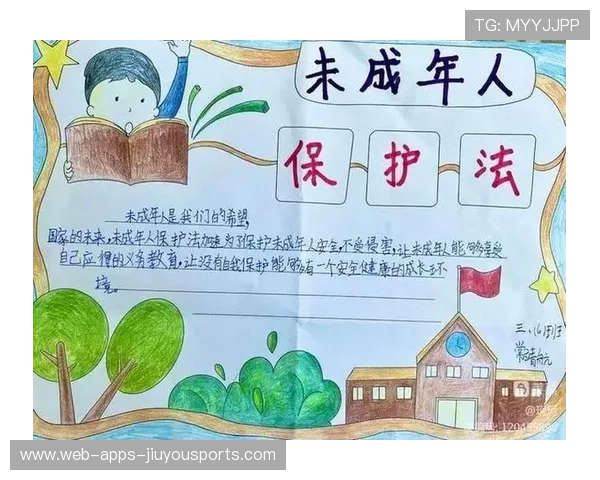 TG: MYYJJPP
未成年人
保护法
未成年人是我们的希望,
国家的未来,未成年人保护法加为了保护未成年人安全,不受侵害,让未成年人能够享受
自己应得的义务教育,让没有自我保护能够有一个安全健康的成长环
境。
三、(6)班
www-web-apps-jiuyousports.com